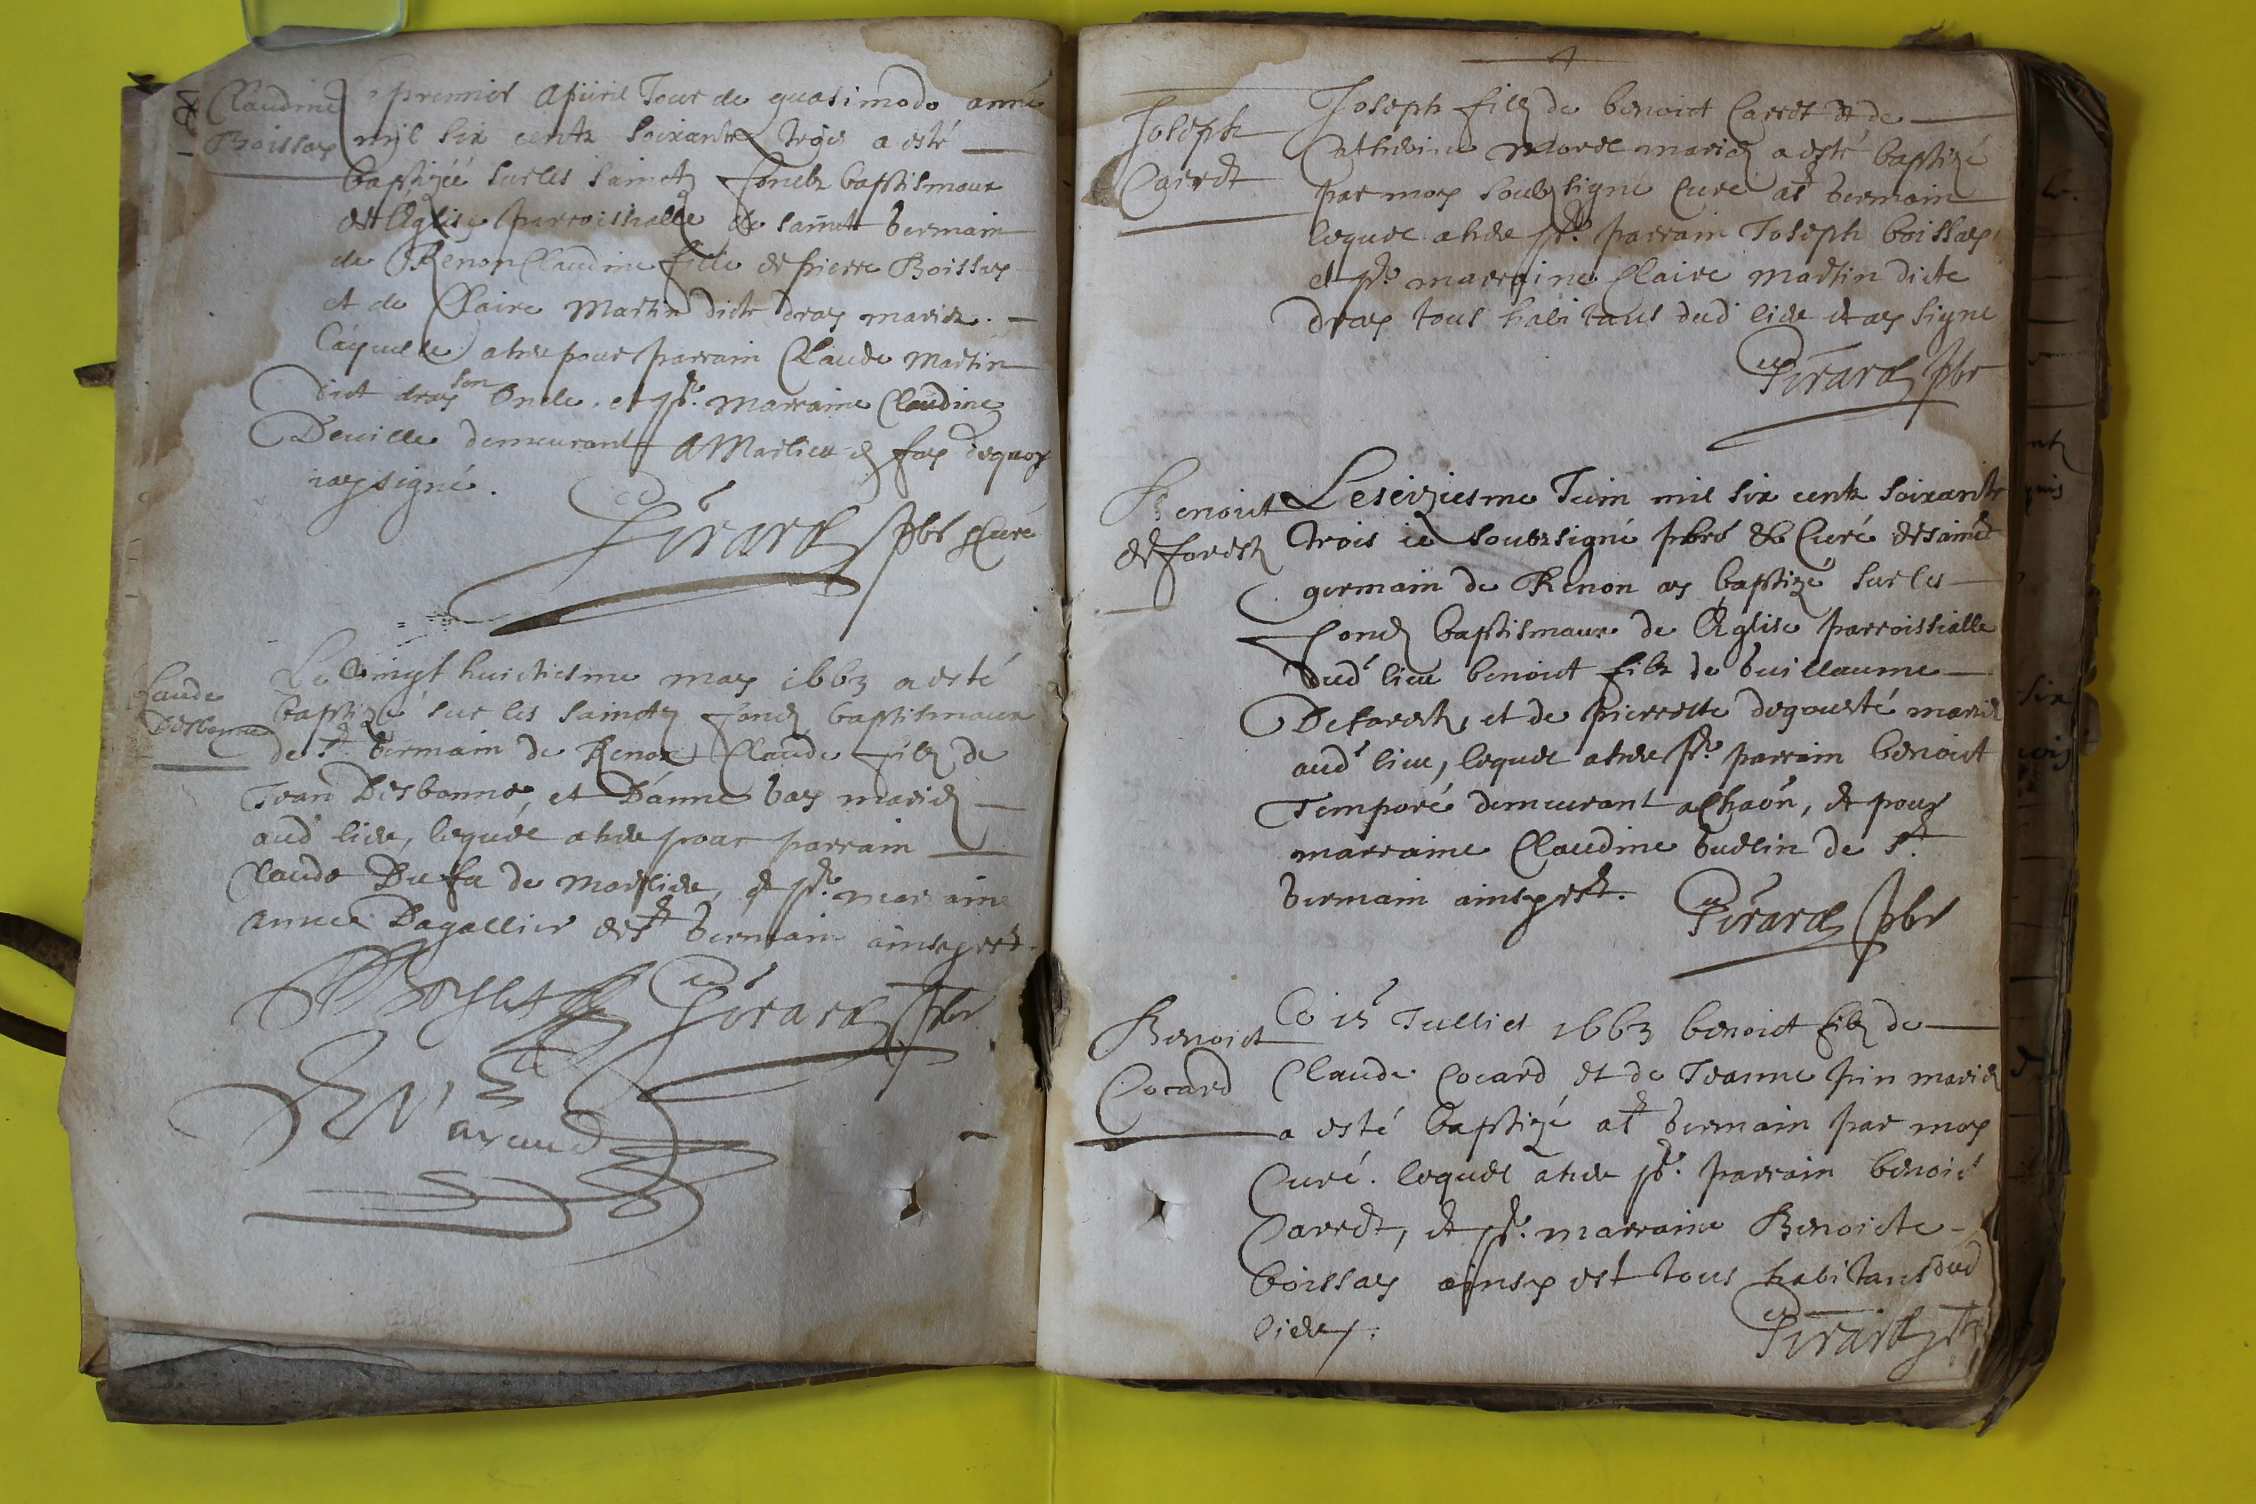 Claudine
Boissay
Le premier Apuril Jour de quasimodo année
mil six centz soixante trois a esté
baptizéé sur les sainctz fondz baptismaux
de l'Eglise parroissialle de sainct Germain
de Renon Claudine fille de pierre Boissay
et de Claire Martin dicte dray mariez.
Laquelle a heu pour parrain Claude Martin
dict dray son Oncle. et pr. marraine Claudine
Deuille demeurant A Marlieu en foy dequoy
iay signé.
Girard pbr & Curé
Claude
Desbonne
Le vingt huictiesme may 1663 a esté
baptizé sur les sainctz fondz baptismaux
de st. Germain de Renon Claude filz de
Jean Desbonne, et D'anne bay mariez
aud lieu, lequel a heu pour parrain
Claude Dufa de Marlieu, et pr. marraine
annee Dagallier de st Germain ainsy est.
Girard pbr
Joseph
Carret
Joseph filz de benoict Carret et de
Catherine Morel mariez a esté baptizé
par moy soubzsigné Curé a st Germain
lequel a heu pr. parrain Joseph boissay
et pr. marraine Claire Martin dicte
dray tous habitans dud lieu et ay signé
Girard pbr
Benoict
deforest
Le seiziesme Juin mil six centz soixante
trois ie soubzsigné pbre & Curé de sainct
germain de Renon ay baptizé sur les
fondz baptismaux de l'Eglise parroissialle
dud lieu benoict filz de Guillaume
Deforest, et de pierrette degousté mariez
aud lieu, lequel a heu pr. parrain benoict
Temporé demeurant a Chaõn, et pour
marraine Claudine Gudlin de st.
Germain ainsy est.
Girard pbr
Benoict
Cocard
Ce 15 Julliet 1663 benoict filz de
Claude Cocard et de Jeanne pin mariez
a esté baptizé a st Germain par moy
Curé. lequel a heu pr. parrain benoict
Carret, et pr. marraine Benoicte
boissay ainsy est tous habitans dud
lieu.
Girard